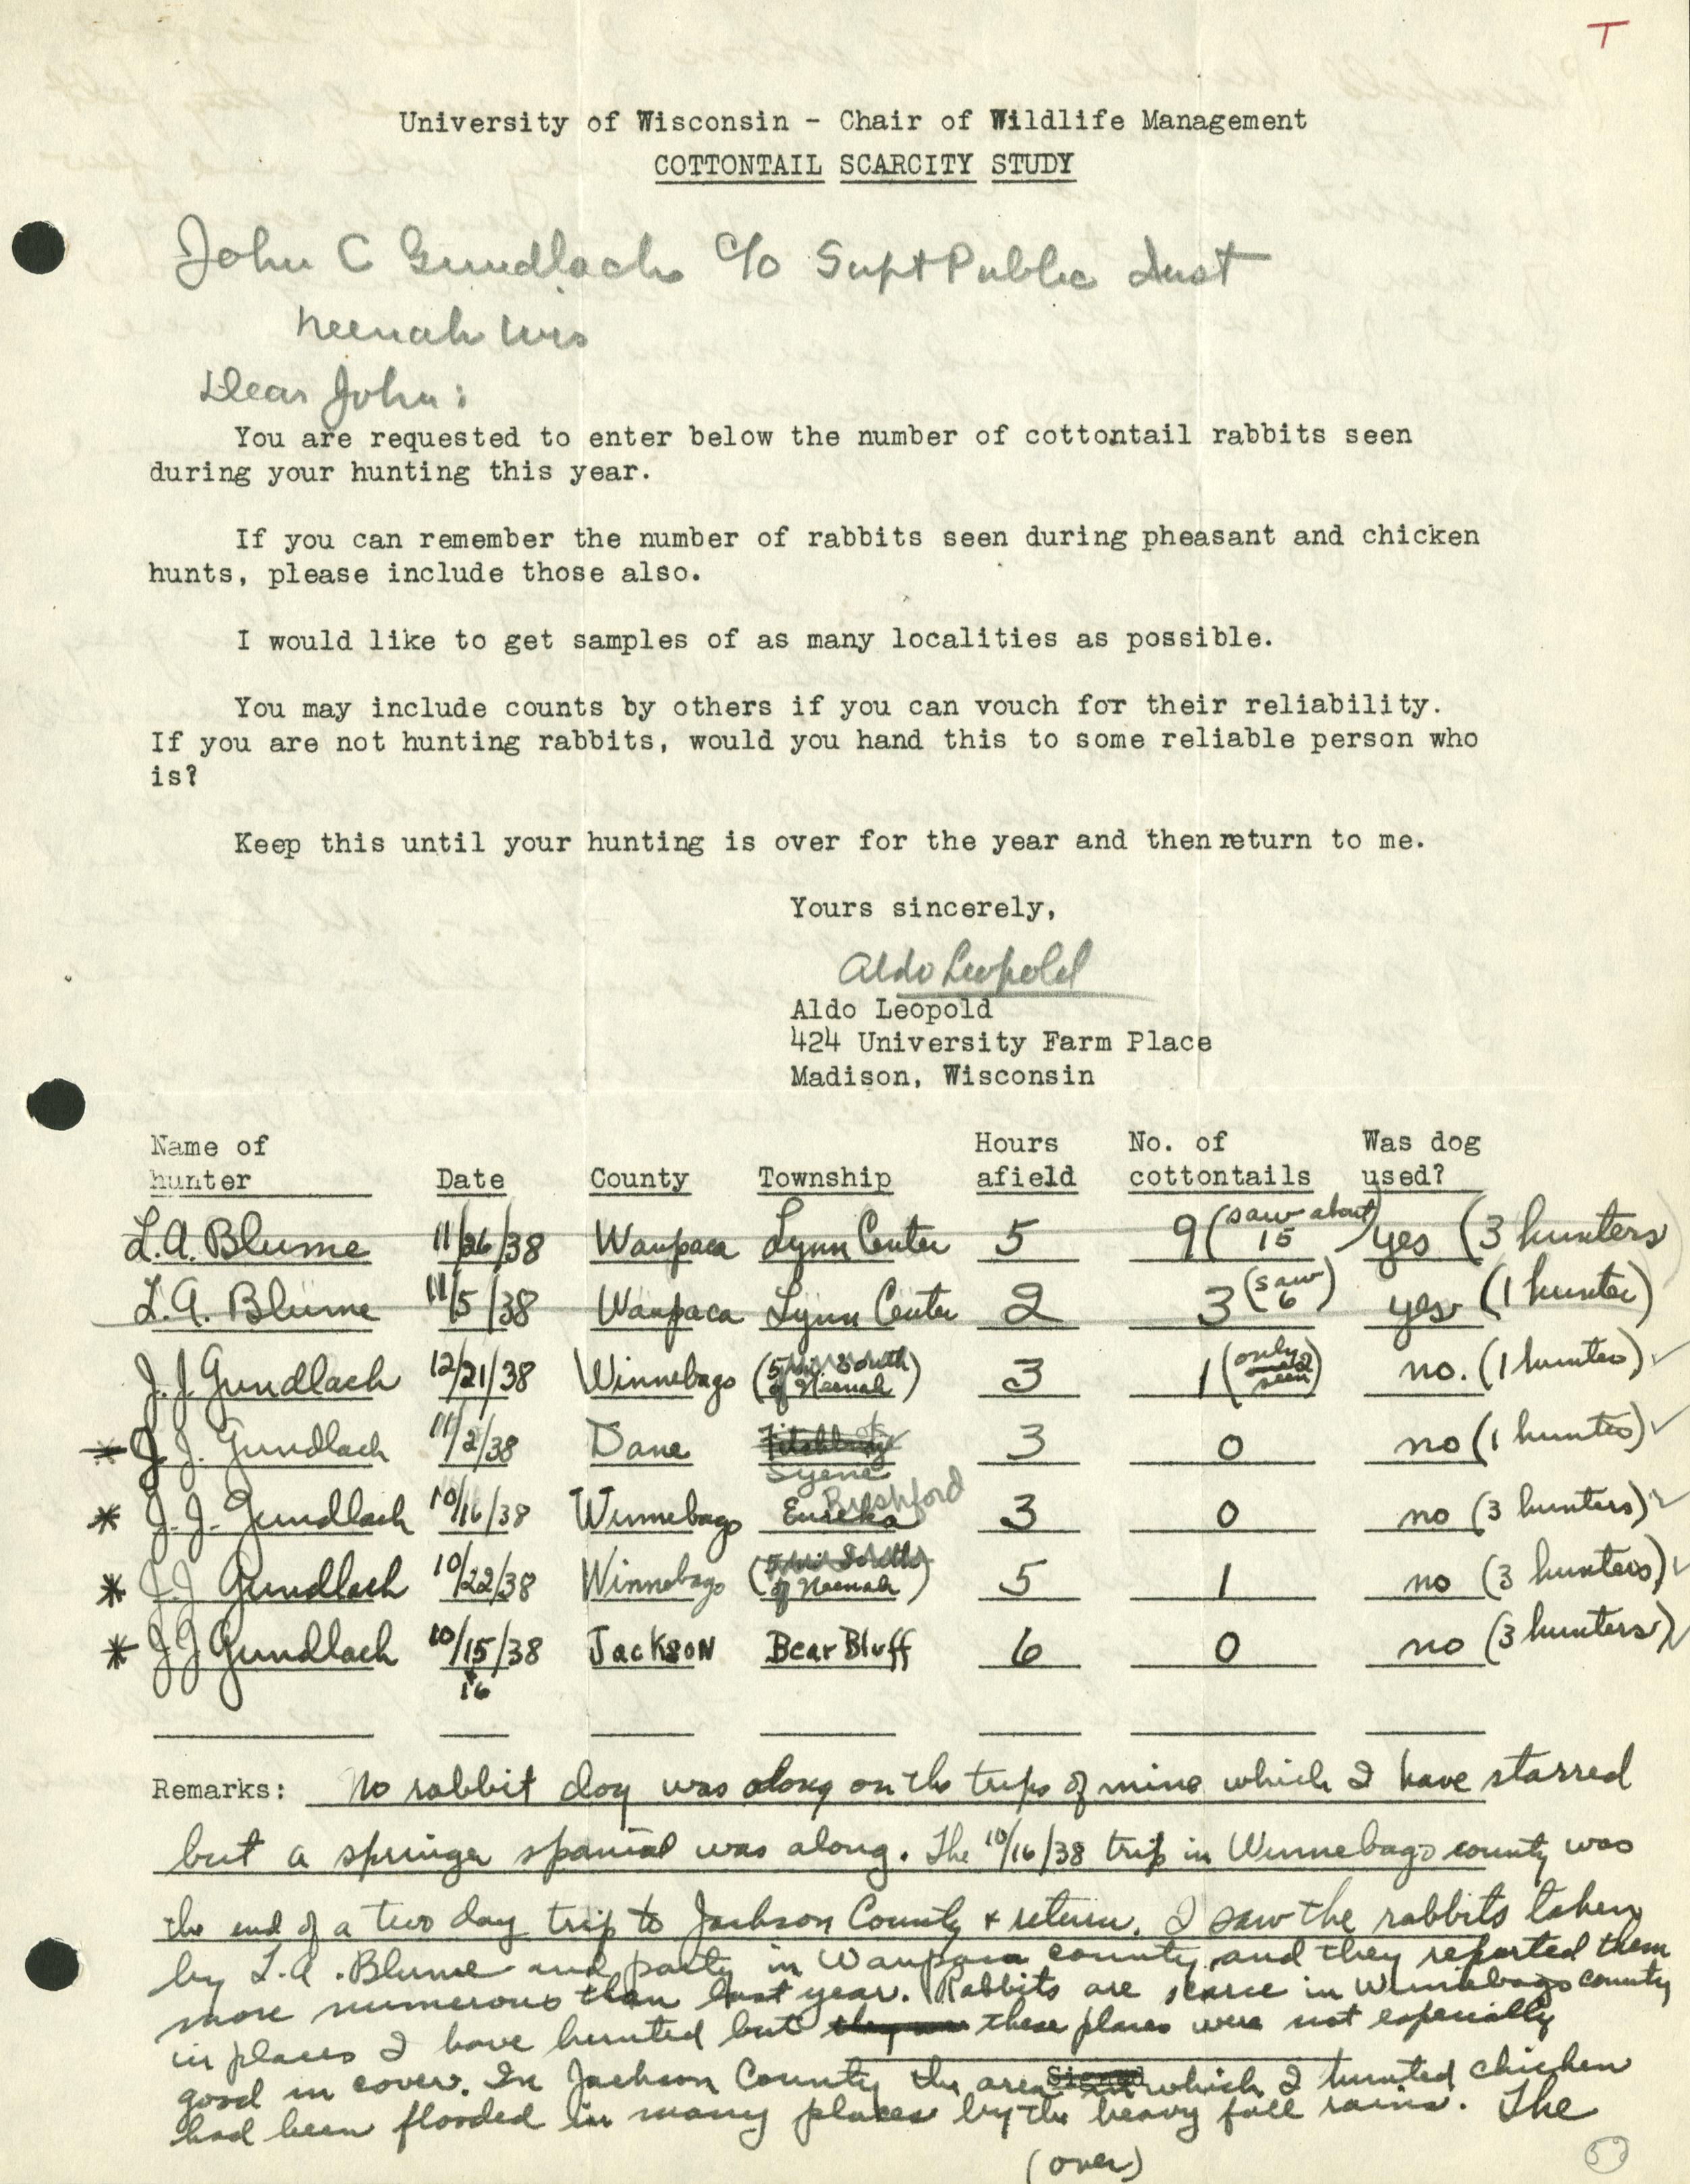 T
University of Wisconsin - Chair of Wildlife Management
COTTONTAIL SCARCITY STUDY
John C Gundlach c/o Supt Public Inst
Neenah Wis
Dear John:
You are requested to enter below the number of cottontail rabbits seen
during your hunting this year.
If you can remember the number of rabbits seen during pheasant and chicken
hunts, please include those also.
I would like to get samples of as many localities as possible.
You may include counts by others if you can vouch for their reliability.
If you are not hunting rabbits, would you hand this to some reliable person who
is?
Keep this until your hunting is over for the year and then return to me.
Yours sincerely,
Aldo Leopold
Aldo Leopold
424 University Farm Place
Madison, Wisconsin
Name of hunter Date County Township Hours afield No. of cottontails Was dog used?
L.A. Blume 11/26/38 Waupaca Lynn Center 5 9 (saw about 15) yes (3 hunters)
L.A. Blume 11/5/38 Waupaca Lynn Center 2 3 (saw 6) yes (1 hunter)
J.J. Gundlach 12/21/38 Winnebago (5 mi South of Neenah) 3 1 (only seen) no. (1 hunter) ✓
* J.J. Gundlach 11/2/38 Dane Fitchburg Syene 3 0 no (1 hunter) ✓
* J.J. Gundlach 10/16/38 Winnebago Eureka Rushford 3 0 no (3 hunters) ✓
* J.J. Gundlach 10/22/38 Winnebago (5 mi South of Neenah) 5 1 no (3 hunters) ✓
* JJ Gundlach 10/15/38 + 16 Jackson Bear Bluff 6 0 no (3 hunters) ✓
Remarks: No rabbit dog was along on the trips of mine which I have starred
but a springer spanial was along. The 10/16/38 trip in Winnebago county was
the end of a two day trip to Jackson County & return. I saw the rabbits taken
by L.A. Blume and party in Waupaca county and they reported them
more numerous than last year. Rabbits are scarce in Winnebago county
in places I have hunted but these places were not especially
good in cover. In Jackson County the area Signed in which I hunted chicken
had been flooded in many places by the heavy fall rains. The
(over)